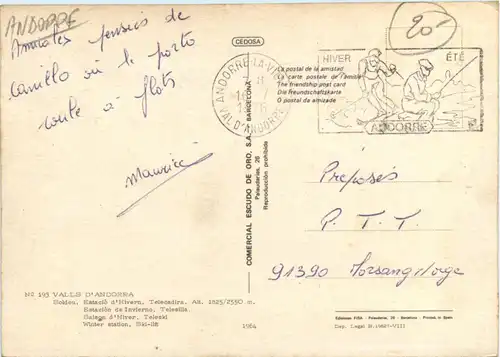 ANDORRE
20
Amicales pensées de
canillo où le porto
coule à flots
Maurice
CEDOSA
ANDORRE-LA-V
VAL D'ANDORRE
HIVER
ÉTÉ
La postal de la amistad
La carte postale de l'amitié
The friendship post card
Die Freundschaftskarte
O postal da amizade
ANDORRE
COMERCIAL ESCUDO DE ORO, S.A. BARCELONA
Palaudarias, 26
Reproducción prohibida
Préposés
P. T. T.
91390 Morsang/orge
Nº 195 VALLS D'ANDORRA
Soldeu, Estació d'Hivern, Telecadira. Alt. 1825/2550 m.
Estación de Invierno, Telesilla
Gelega d'Hiver, Teleski
Winter station, Ski-lift
1964
Ediciones FISA - Palaudarias, 26 - Barcelona - Printed in Spain
Dep. Legal B. 19627-VIII